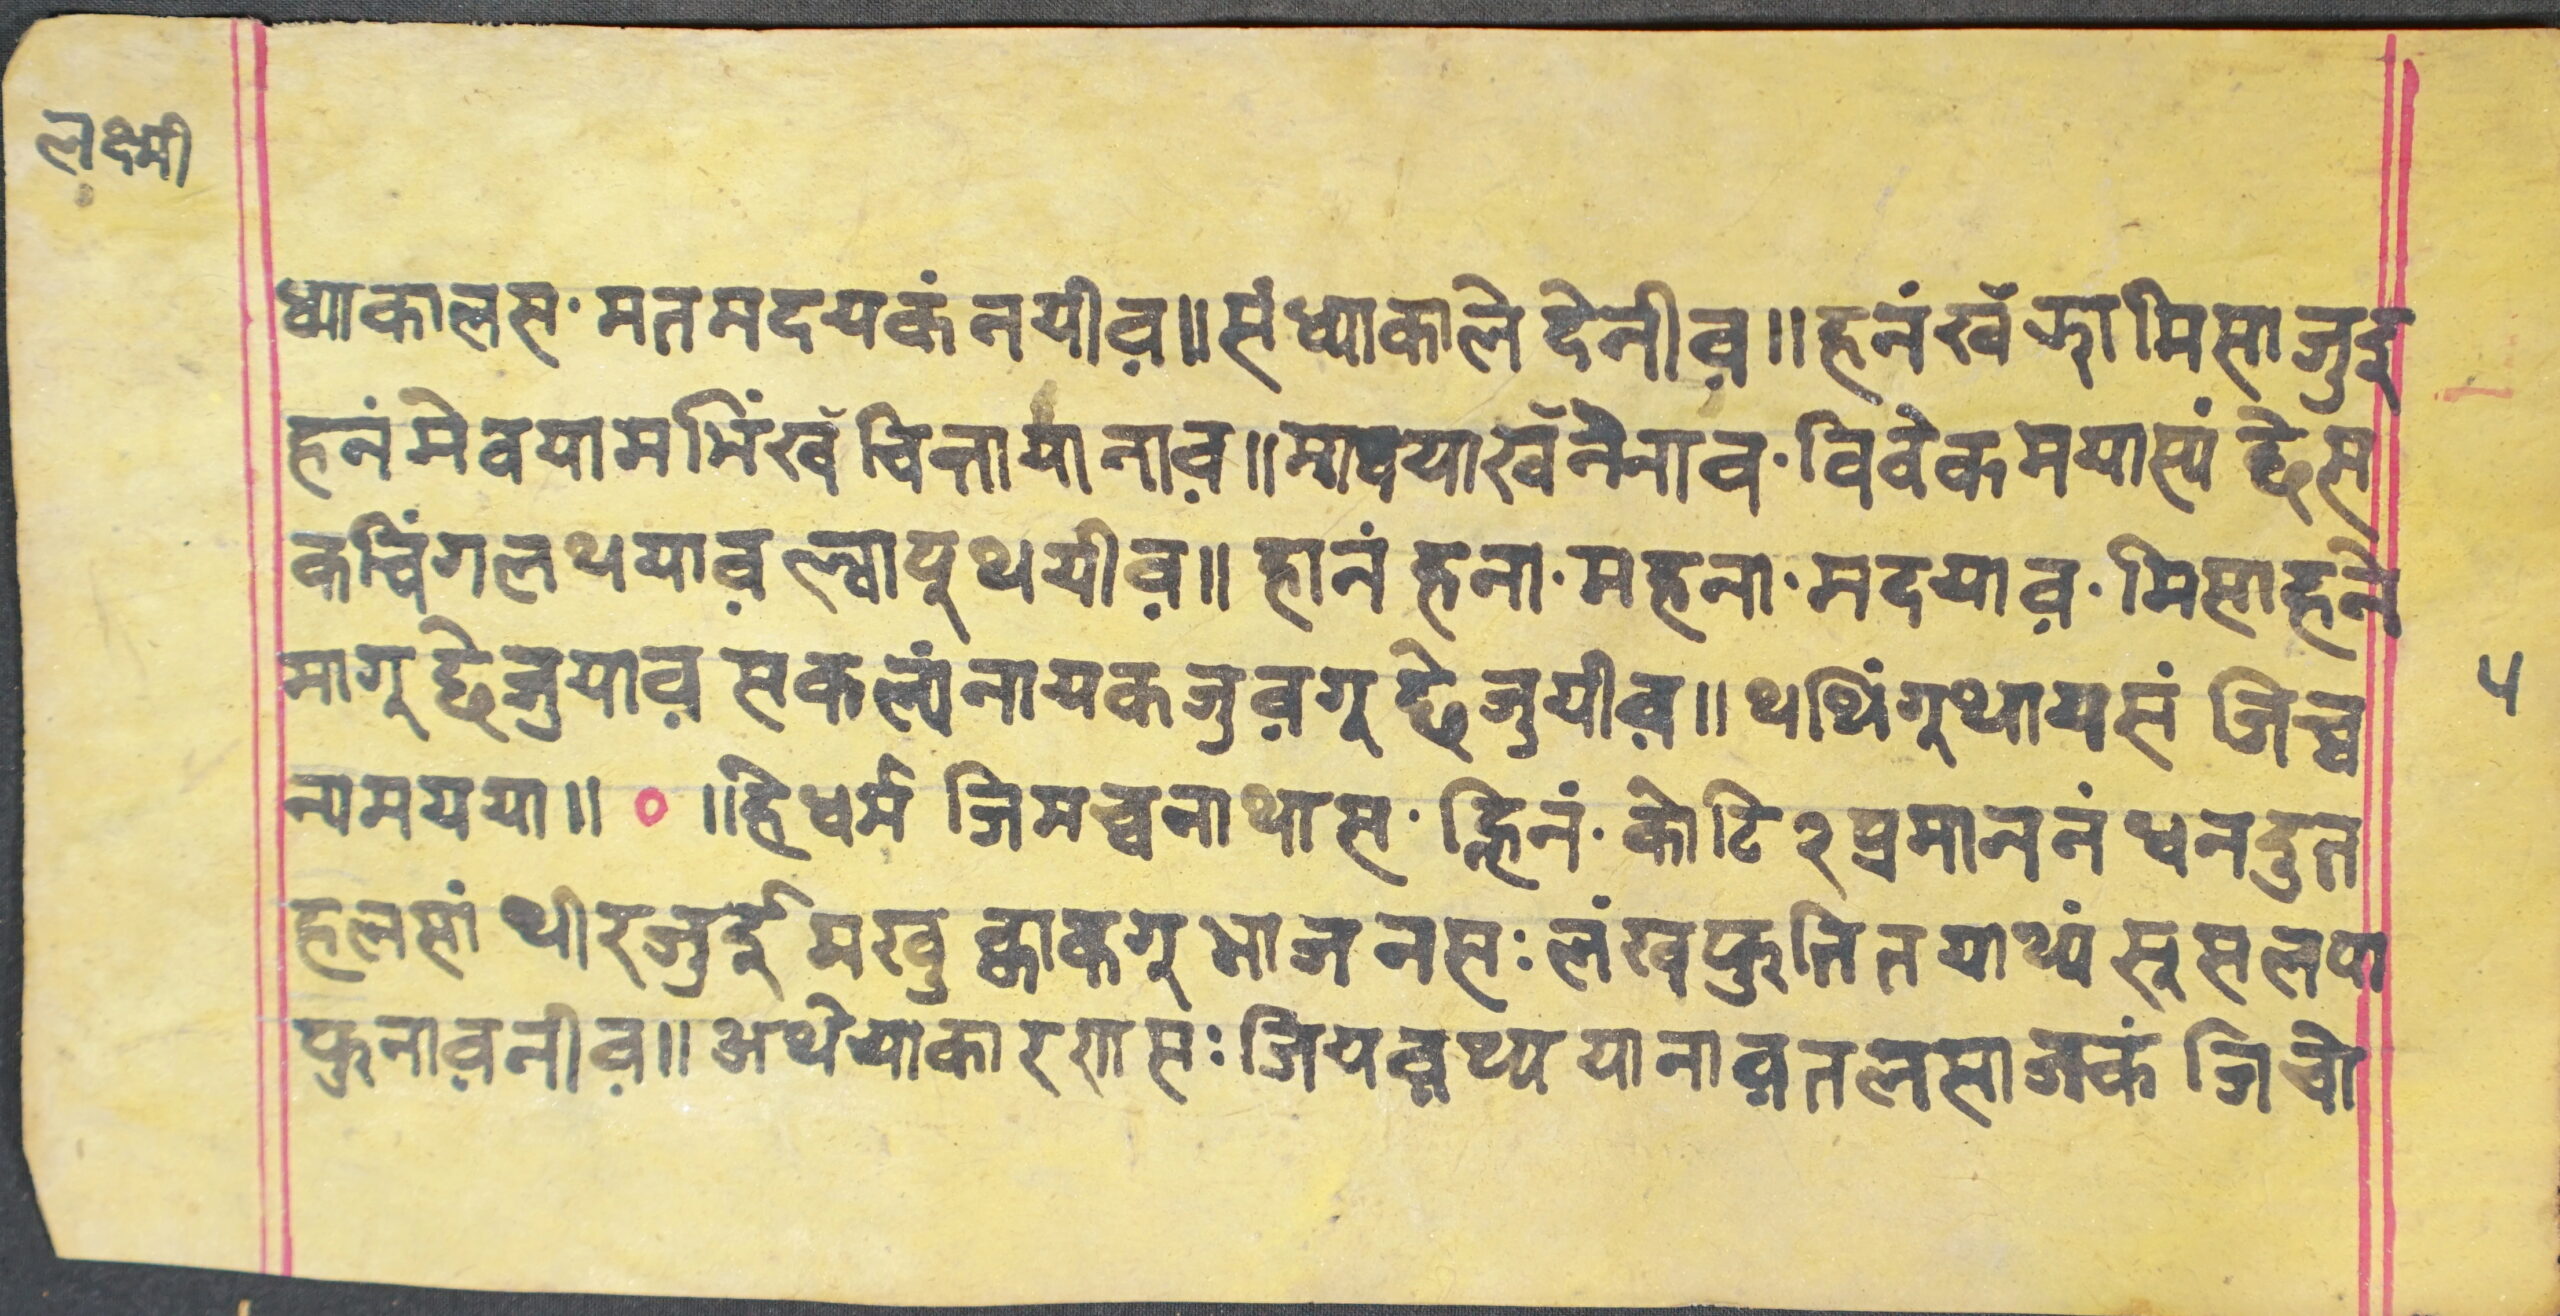 लक्ष्मी
ध्याकालस · मतमदयकं नयीव़॥ संध्याकाले देनीव़॥ हनं खँ झामिसा जुइ
हनं मेवयामभिंखँ चिन्तायानाव़॥ मोवयाखँनेनाव · विवेकमयास्यं छेस
कचिंगलथयाव़ ल्वापूथयीव़॥ हानं हना · महना · मदयाव़ · मिसाहने
मागू छेजुयाव़ सकल्यं नायकजुव़गू छेजुयीव़॥ थथिंगूथायसं जिच्व
न्यमयया॥ ० ॥हे धर्म जिमच्वनाथास · ह्निनं · कोटि २ प्रमाननं धनदुत
हलसां थीरजुई मखु ह्वाकगू भाजनसः लंखफुतितयाथ्यं सूसलपा
फुनाव़नीव़॥ अथेयाकारणसः जियव़थ्य यानाव़तलसाजकं जिचो
५